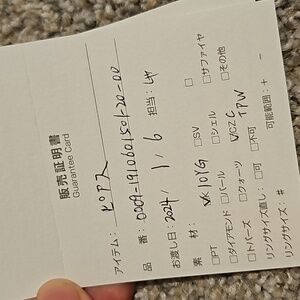 販売証明書
Guarantee Card
アイテム: ピアス
品 番: 0009-1910601501-20-00
お渡し日: 2024/ 1/ 6 担当:
素 材: ✓K10YG □SV □
□PT □シェル □サファイヤ
□ダイアモンド □パール ✓CZ C □その他
□トパーズ □クォーツ TPW
リングサイズ直し: □可 □不可 可能範囲: + -
リングサイズ: #